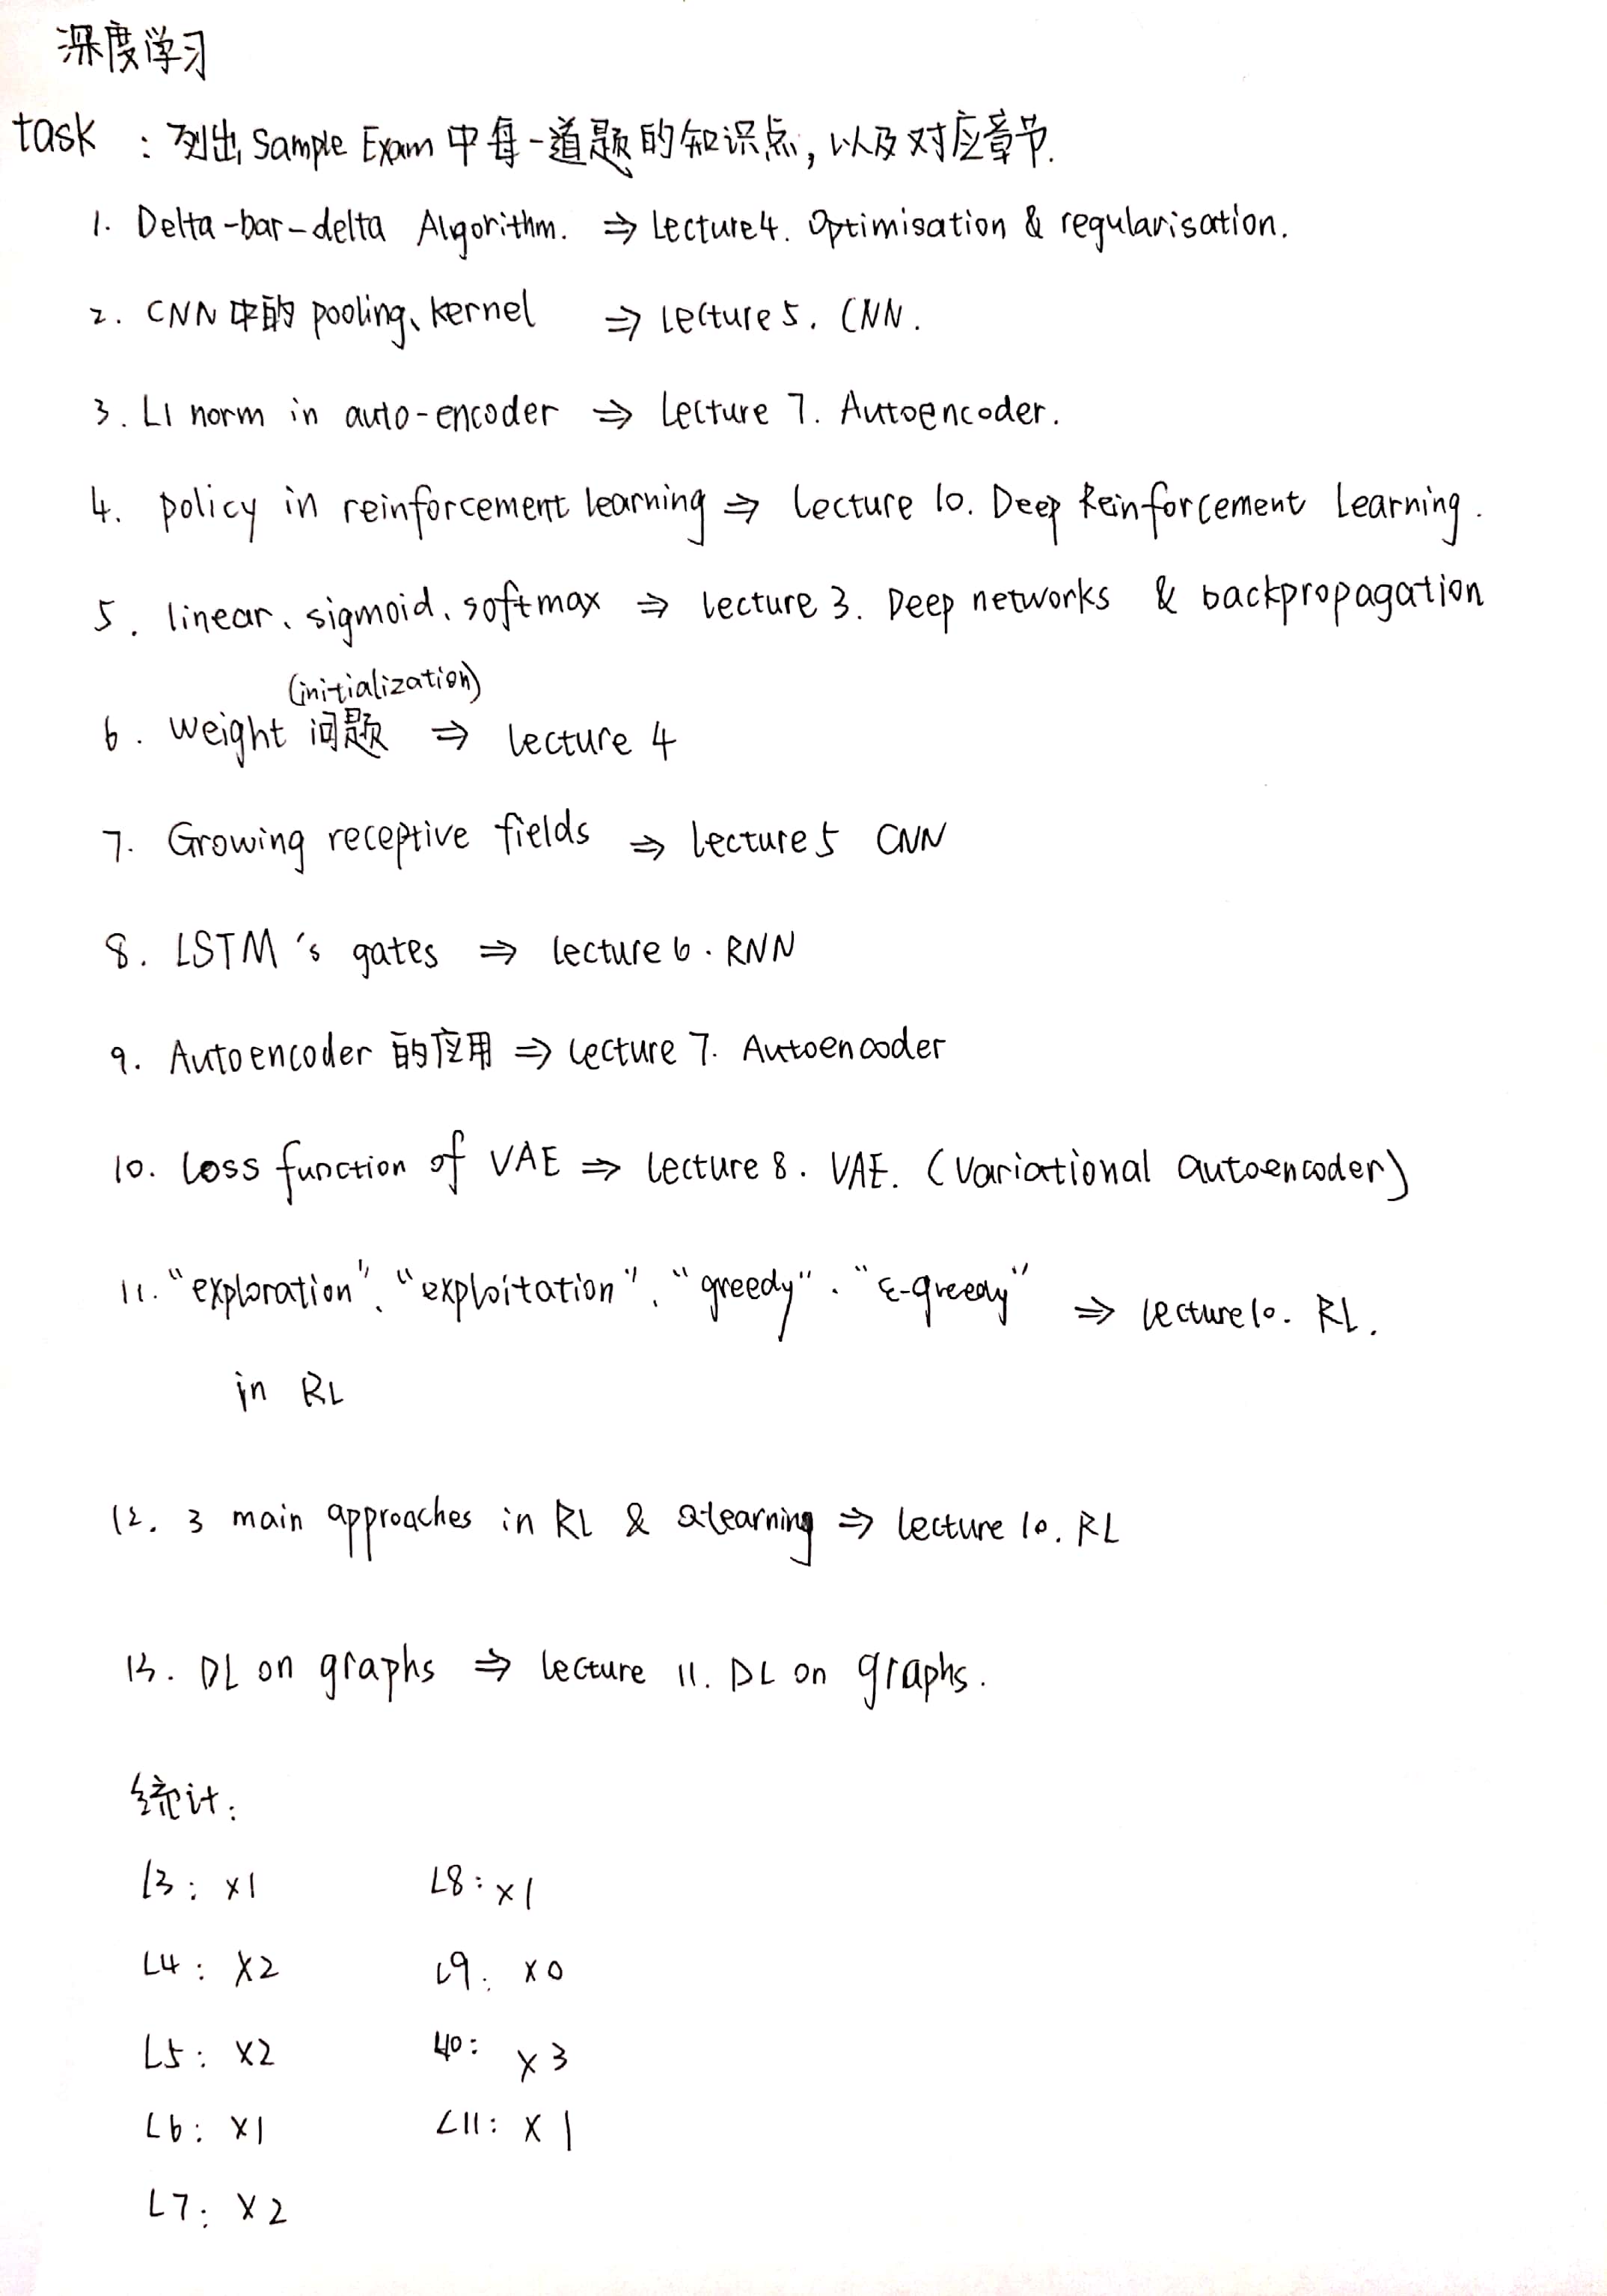 深度学习
task : 列出 Sample Exam 中每一道题的知识点, 以及对应章节.
1. Delta-bar-delta Algorithm. ⇒ Lecture4. Optimisation & regularisation.
2. CNN 中的 pooling、kernel ⇒ Lecture 5. CNN.
3. L1 norm in auto-encoder ⇒ Lecture 7. Autoencoder.
4. policy in reinforcement learning ⇒ Lecture 10. Deep Reinforcement Learning.
5. linear、sigmoid、softmax ⇒ Lecture 3. Deep networks & backpropagation
(initialization)
6. weight 问题 ⇒ Lecture 4
7. Growing receptive fields ⇒ Lecture 5 CNN
8. LSTM 's gates ⇒ Lecture 6. RNN
9. Autoencoder 的应用 ⇒ Lecture 7. Autoencoder
10. Loss function of VAE ⇒ Lecture 8. VAE. (Variational autoencoder)
11. "exploration"、"exploitation"、"greedy"、"ε-greedy" ⇒ Lecture10. RL.
in RL
12. 3 main approaches in RL & Q-learning ⇒ Lecture 10. RL
13. DL on graphs ⇒ Lecture 11. DL on graphs.
统计:
L3: x1 L8: x1
L4: x2 L9: x0
L5: x2 L10: x3
L6: x1 L11: x1
L7: x2